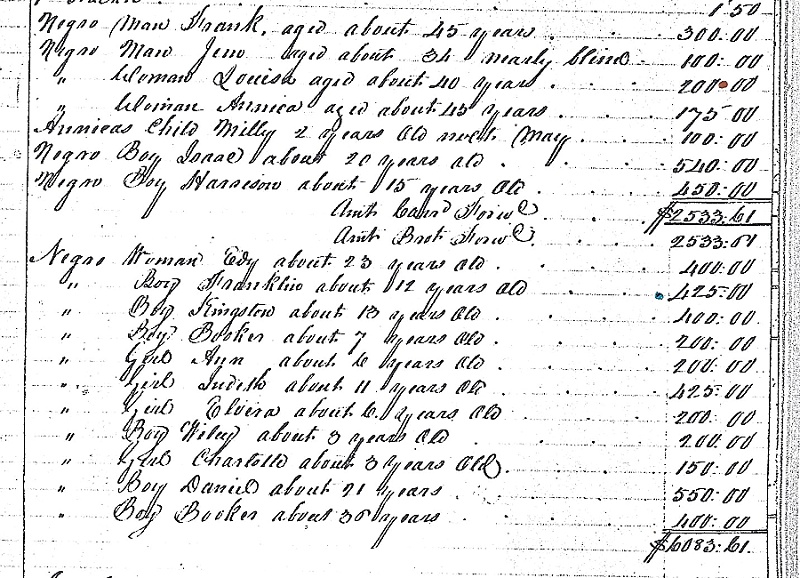 1 50
Negro Man Frank, aged about 45 years . 300.00
Negro Man Jem aged about 34 nearly blind . 100.00
" Woman Louisa aged about 40 years . 200.00
" Woman Annica aged about 45 years . 175.00
Annicas Child Milly 2 years Old next May . 100.00
Negro Boy Isaac about 20 years old . 540.00
Negro Boy Harrison about 15 years Old . 450.00
Amt Carrd Forwd $2533.61
Amt Brot Forwd 2533.61
Negro Woman Edy about 23 years Old . 400.00
" Boy Franklin about 12 years Old 425.00
" Boy Kingston about 13 years Old . 400.00
" Boy Booker about 7 years Old . 200.00
" Girl Ann about 6 years Old . 200.00
" Girl Judith about 11 years Old . 425.00
" Girl Elvira about 6 years Old 200.00
" Boy Wiley about 3 years Old 200.00
" Girl Charlotte about 3 years Old . 150.00
" Boy Daniel about 21 years 550.00
" Boy Booker about 36 years . 400.00
$6083.61